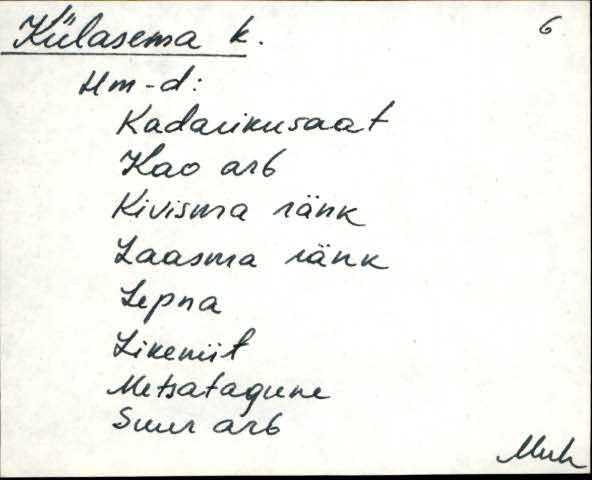 Külasema k. 6
Hm-d:
Kadarikusaat
Kao arb
Kivisma ränk
Laasma ränk
Lepna
Likemiit
Metsatagune
Suur arb
Muh